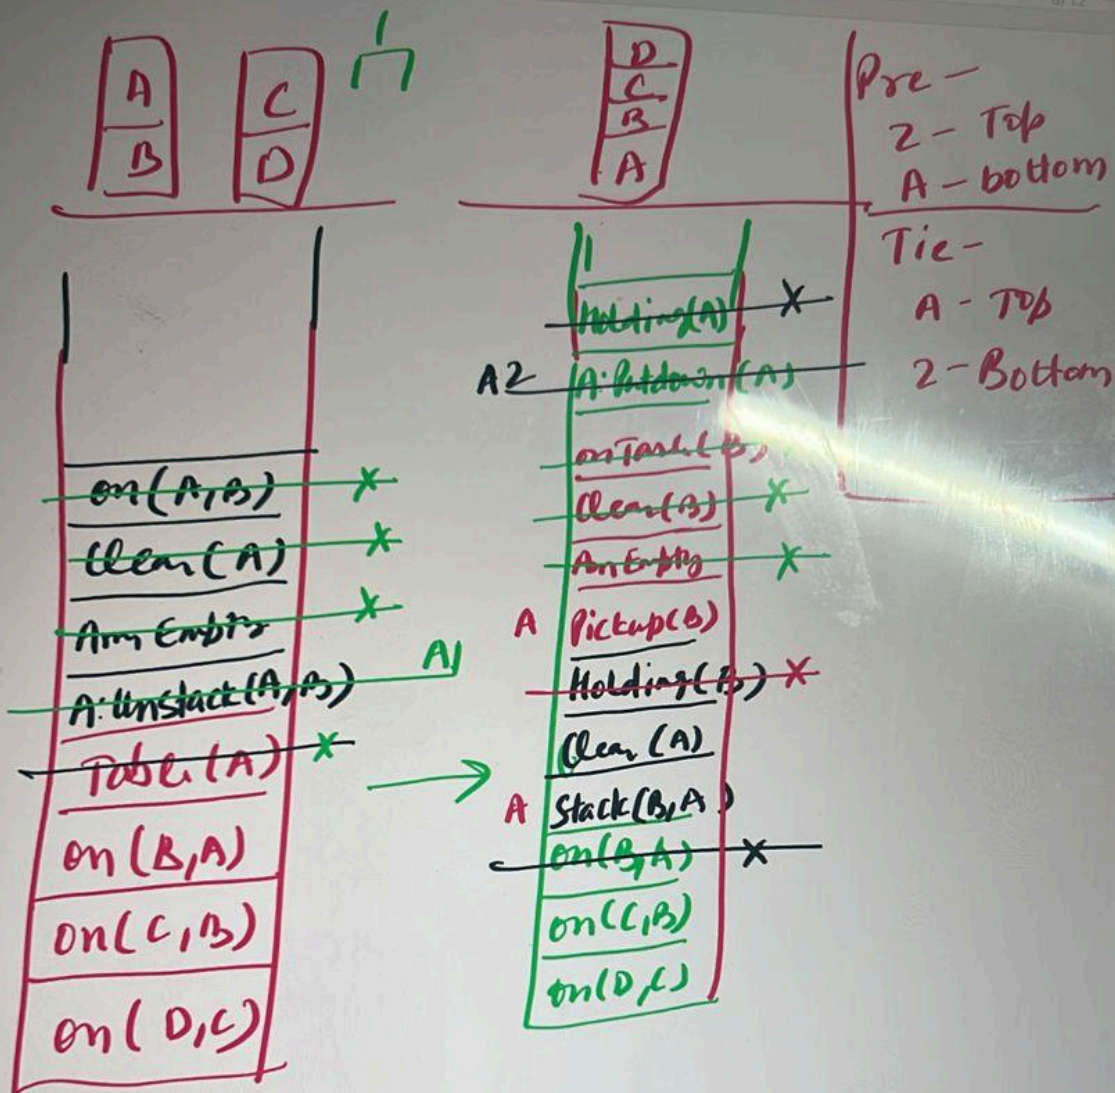 A
B
C
D
D
C
B
A
Pre -
2 - Top
A - bottom
Tie -
A - Top
2 - Bottom
on(A,B) X
Clear(A) X
Arm Empty X
A:Unstack(A,B) A1
Table(A) X
on(B,A)
on(C,B)
on(D,C)
Holding(A) X
A2 A:Putdown(A)
Clear(B) X
Arm Empty X
A Pickup(B)
Holding(B) X
Clear(A)
A Stack(B,A)
on(B,A) X
on(C,B)
on(D,C)